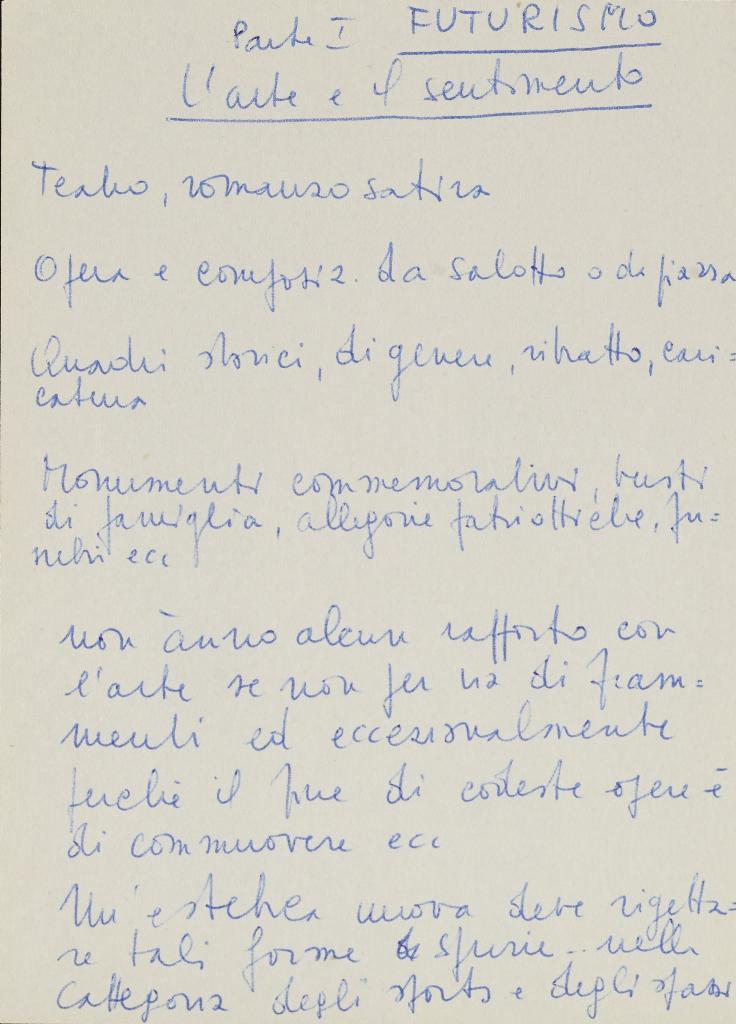 Parte I FUTURISMO
L'arte e il sentimento
Teatro, romanzo satira
Opera e composiz. da salotto o da piazza
Quadri storici, di genere, ritratto, cari=
catura
Monumenti commemorativi, busti
di famiglia, allegorie patriottiche, fu=
nebri ecc
non ànno alcun rapporto con
l'arte se non per via di fram=
menti ed eccezionalmente
perchè il fine di codeste opere è
di commuovere ecc
Un'estetica nuova deve rigetta=
re tali forme spurie nella
categoria degli sports e degli spassi